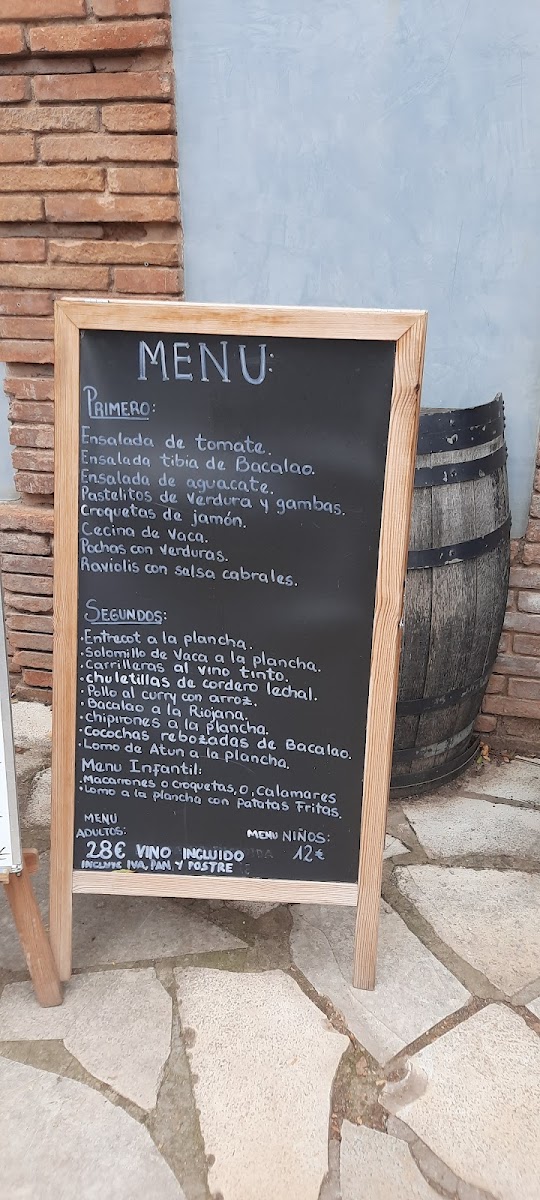 MENU:
PRIMERO:
Ensalada de tomate.
Ensalada tibia de Bacalao.
Ensalada de aguacate.
Pastelitos de verdura y gambas.
Croquetas de jamón.
Cecina de vaca.
Pochas con verduras.
Raviolis con salsa cabrales.
SEGUNDOS:
·Entrecot a la plancha.
·Solomillo de Vaca a la plancha.
·Carrilleras al vino tinto.
·chuletillas de cordero lechal.
·Pollo al curry con arroz.
·Bacalao a la Riojana.
·chipirones a la plancha.
·Cocochas rebozadas de Bacalao.
·Lomo de Atun a la plancha.
Menu Infantil:
·Macarrones o croquetas, o, calamares
·Lomo a la plancha con Patatas Fritas.
MENU
ADULTOS: MENU NIÑOS:
28€ VINO INCLUIDO 12€
INCLUYE IVA, PAN Y POSTRE